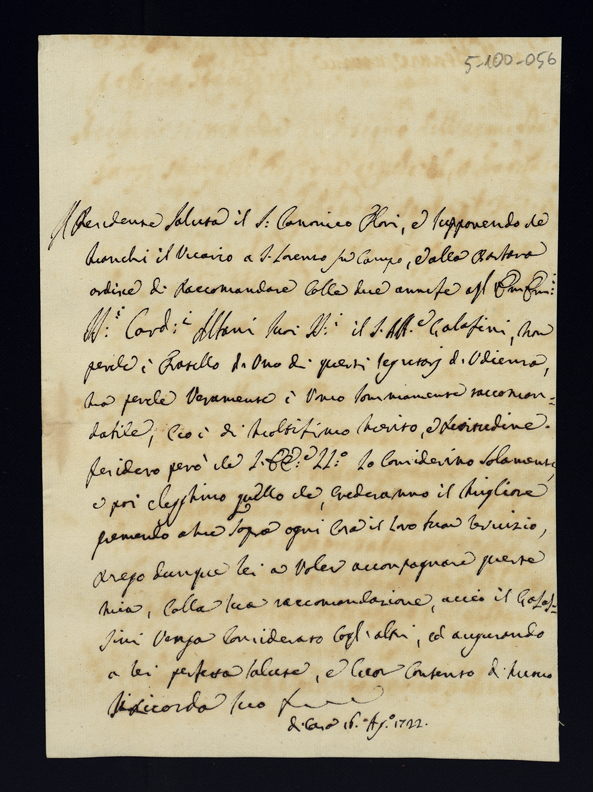 5-100-056
Il Pendense Saluta il S: Canonico Flori, e supponendo che
manchi il Vicario a S. Lorenzo in Campo, e alla
ordine di raccomandare colle due annesse agl' Em: Em:
SS:i Card:i Albani suoi SS:i il S. Galassini, non
perche è fratello di uno di questi segretarj di Udienza,
ma perche veramente è Uomo sommamente raccoman=
dabile, cioè di moltissimo merito, e
però che lo considerino solamente,
e poi elegghino quello che, crederanno il migliore
premendo a me sopra ogni cosa il loro buon servizio,
prego dunque lei a voler accompagnare queste
mie, colla sua raccomandazione, acciò il Galas=
sini venga considerato cogl' altri, ed augurando
a lei perfetta salute, e cuor contento di nuovo
si ricorda suo
di Casa 16. Ag.o 1722.